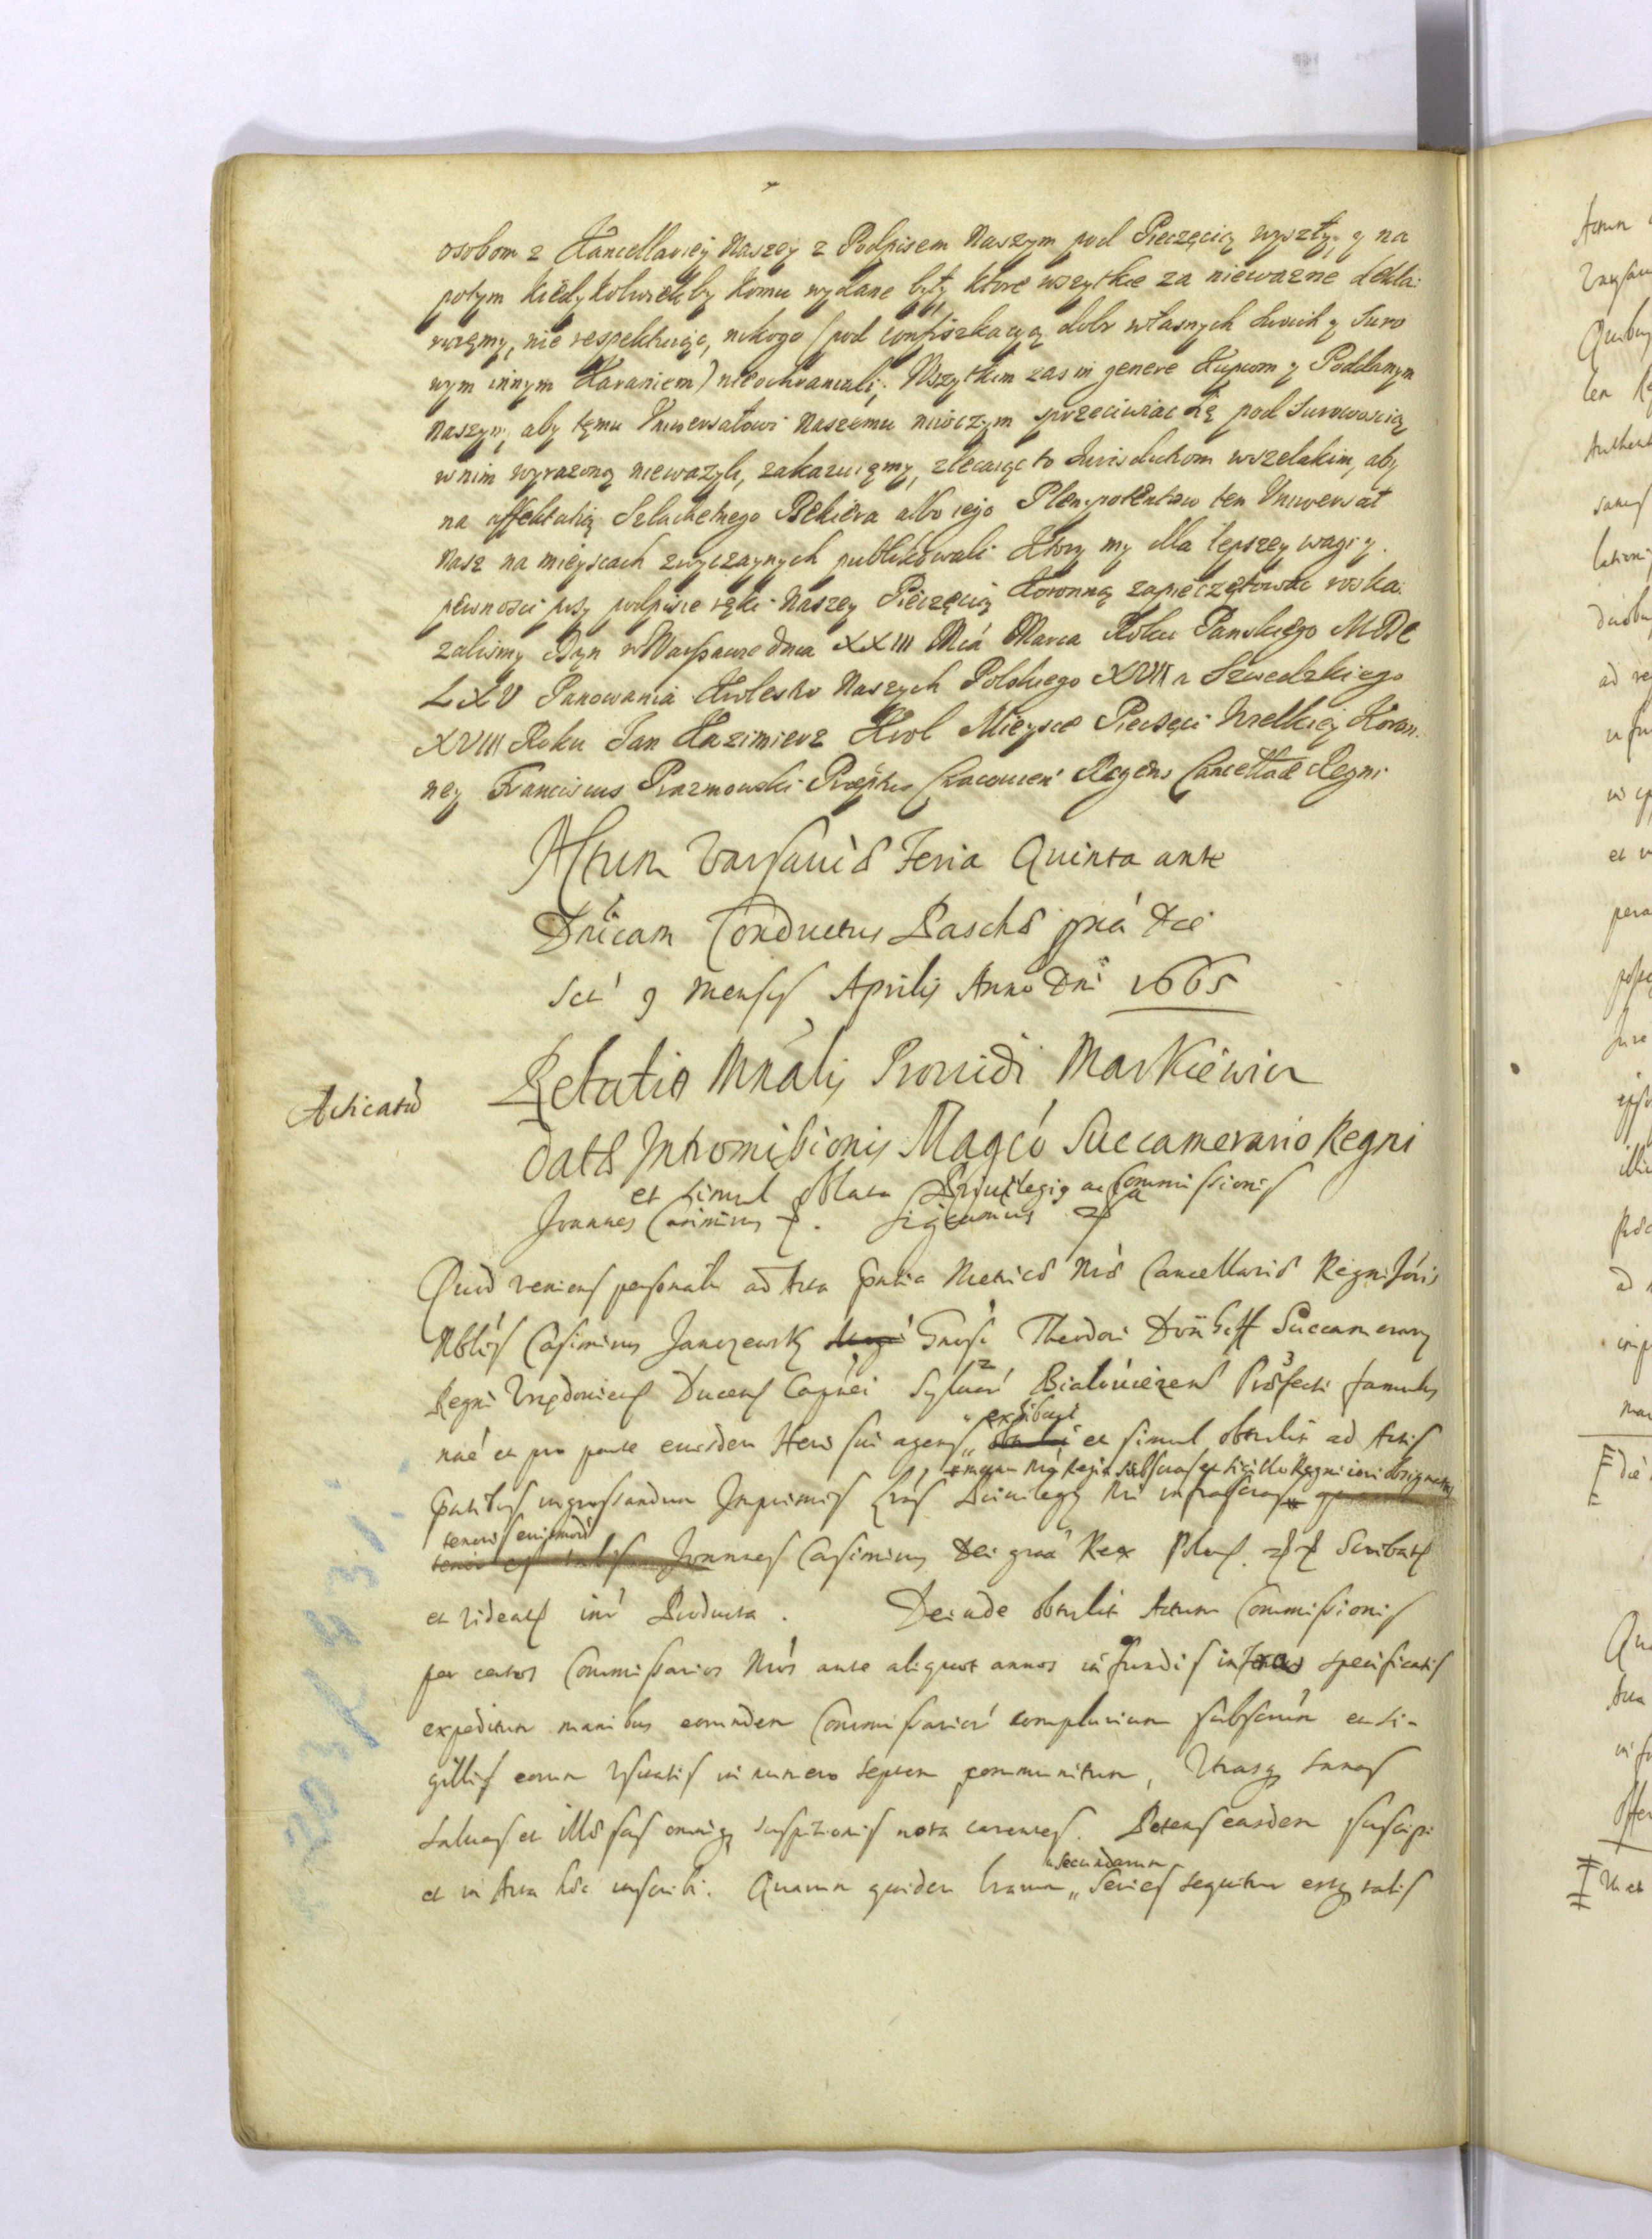 osobom z Kancellariey Naszey z Podpisem Naszym pod Pieczęcią wyszły, y na
potym kiedykolwiek by komu wydane były które wszytkie za nieważne dekla:
ruięmy, nie respektuiąc, nikogo (pod confiszkacyą dobr własnych Swoich y Suro
wym innym Karaniem) nieochraniali; Wszytkim zas in genere Kupcom y Poddanym
Naszym, aby temu Uniwersałowi Naszemu niwczym sprzeciwiac się pod Surowoscią
w nim wyrazoną niewazyli, zakazuięmy, zlecaiąc to Jurisdictiom wszelakim, aby
na affektatią Szlachetnego Bekiera albo iego Plenipotentow ten Vniwersał
Nasz na mieyscach zwyczaynych publikowali Ktory my dla lepszey wagi y
pewnosci przy podpisie ręki Naszey Pieczęcią Koronną zapieczętowac roska:
zalismy Dan w Warszawie Dnia XXIII Mca Marca Roku Panskiego MDC
LXV Panowania Krolestw Naszych Polskiego XVII a Szwedzkiego
XVIII Roku Jan Kazimierz Krol Mieysce Pieczęci Wielkiey Koron:
ney Franciscus Prazmowski Cracovien Regens Cancellae Regni
Actum Varsaviæ Feria Quinta ante
Dnicam Conductus Paschæ pria die
sct 9 Mensis Aprilis Anno Dni 1665
Relatio Mnalis Providi Markiewicz
Acticatio
datæ Intromissionis Magco Succamerario Regni
et simul oblata Privilegiorum ac Commissionis
Joannes Casimirus Significamus
Quod veniens personalr ad Acta pntia Metricæ Nræ Cancellariæ Regni Joris
Nblis Casimirus Janczewsky Gnosi Theodori Dönhoff Succamerary
Regni Vrzędoviens Ducens Capnei Sylvar 2 Białoviezens Præfecti 3 famulus
noie et pro parte eiusdem Heri sui agens exhibuit et simul obtulit ad Actis
manu Nra Regia Subscras et Sigillo Regni obsignatas
pntibus ingrossandum Inprimis Lras Privilegy Nri infrascras
tenoris eiusmodi
Joannes Casimirus Dei gra Rex Polns Scribats
et videats inr Producta. Deinde obtulit Actum Commissionis
per certos Commissarios Nros ante aliquot annos in fundis infra specificatis
expeditum manibus eorundem Commissarior complurium subscriu et si-
gillis eorum vsitatis in numero septem communitum, Vtrasq sanas
salvas et illæsas omniq suspitionis nota carentes. Petens easdem suscipi
et in Acta hæc inscribi. Quarum quidem Lrarum secundarum Series sequitur estq talis